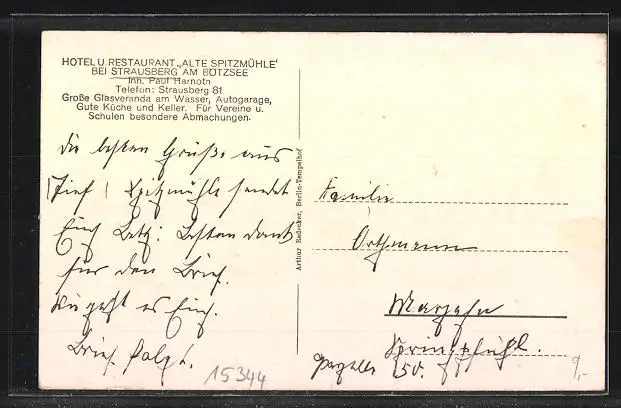 HOTEL U. RESTAURANT „ALTE SPITZMÜHLE'
BEI STRAUSBERG AM BÖTZSEE
Inh. Paul Harnoth
Telefon: Strausberg 81
Große Glasveranda am Wasser, Autogarage,
Gute Küche und Keller. Für Vereine u.
Schulen besondere Abmachungen.
die besten Grüße aus
Spitzmühle sendet
Euch Besten Dank
für den Brief.
Wie geht es Euch.
Brief folgt.
15344
Arthur Redecker, Berlin-Tempelhof
Familie
Orthmann
Marzahn
Springpfuhl.
Parzelle 50.
9,-